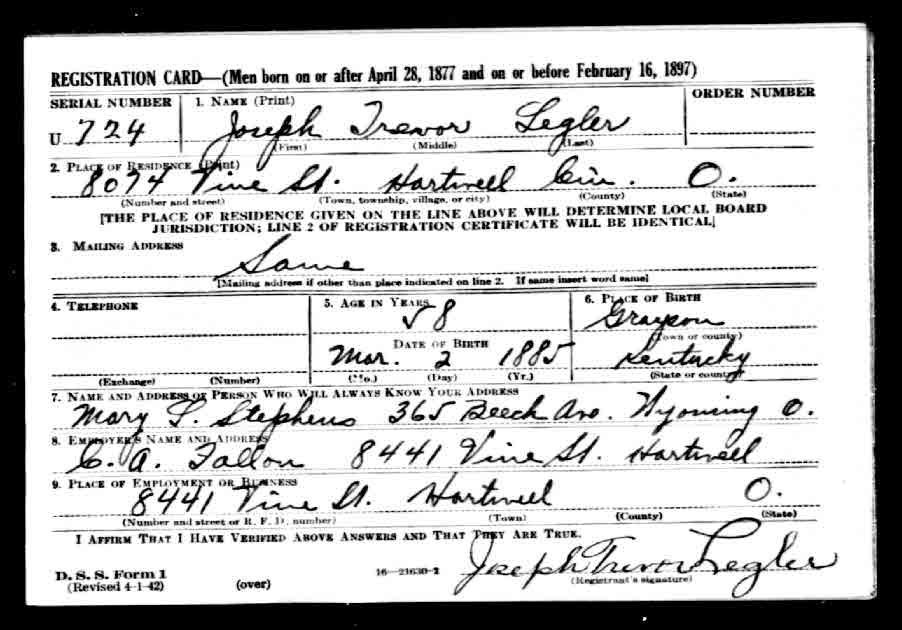 REGISTRATION CARD—(Men born on or after April 28, 1877 and on or before February 16, 1897)
SERIAL NUMBER 1. NAME (Print) ORDER NUMBER
U 724 Joseph Trevor Legler
(First) (Middle) (Last)
2. PLACE OF RESIDENCE (Print)
8074 Vine St. Hartwell Cin. O.
(Number and street) (Town, township, village, or city) (County) (State)
[THE PLACE OF RESIDENCE GIVEN ON THE LINE ABOVE WILL DETERMINE LOCAL BOARD
JURISDICTION; LINE 2 OF REGISTRATION CERTIFICATE WILL BE IDENTICAL]
3. MAILING ADDRESS
Same
[Mailing address if other than place indicated on line 2. If same insert word same]
4. TELEPHONE 5. AGE IN YEARS 6. PLACE OF BIRTH
58 Grayson
(Town or county)
DATE OF BIRTH
Mar. 2 1885 Kentucky
(Exchange) (Number) (Mo.) (Day) (Yr.) (State or country)
7. NAME AND ADDRESS OF PERSON WHO WILL ALWAYS KNOW YOUR ADDRESS
Mary L. Stephens 365 Beech Ave. Wyoming O.
8. EMPLOYER'S NAME AND ADDRESS
C. A. Fallon 8441 Vine St. Hartwell
9. PLACE OF EMPLOYMENT OR BUSINESS
8441 Vine St. Hartwell O.
(Number and street or R. F. D. number) (Town) (County) (State)
I AFFIRM THAT I HAVE VERIFIED ABOVE ANSWERS AND THAT THEY ARE TRUE.
Joseph Trevor Legler
D. S. S. Form 1 16—21630-2 (Registrant's signature)
(Revised 4-1-42) (over)